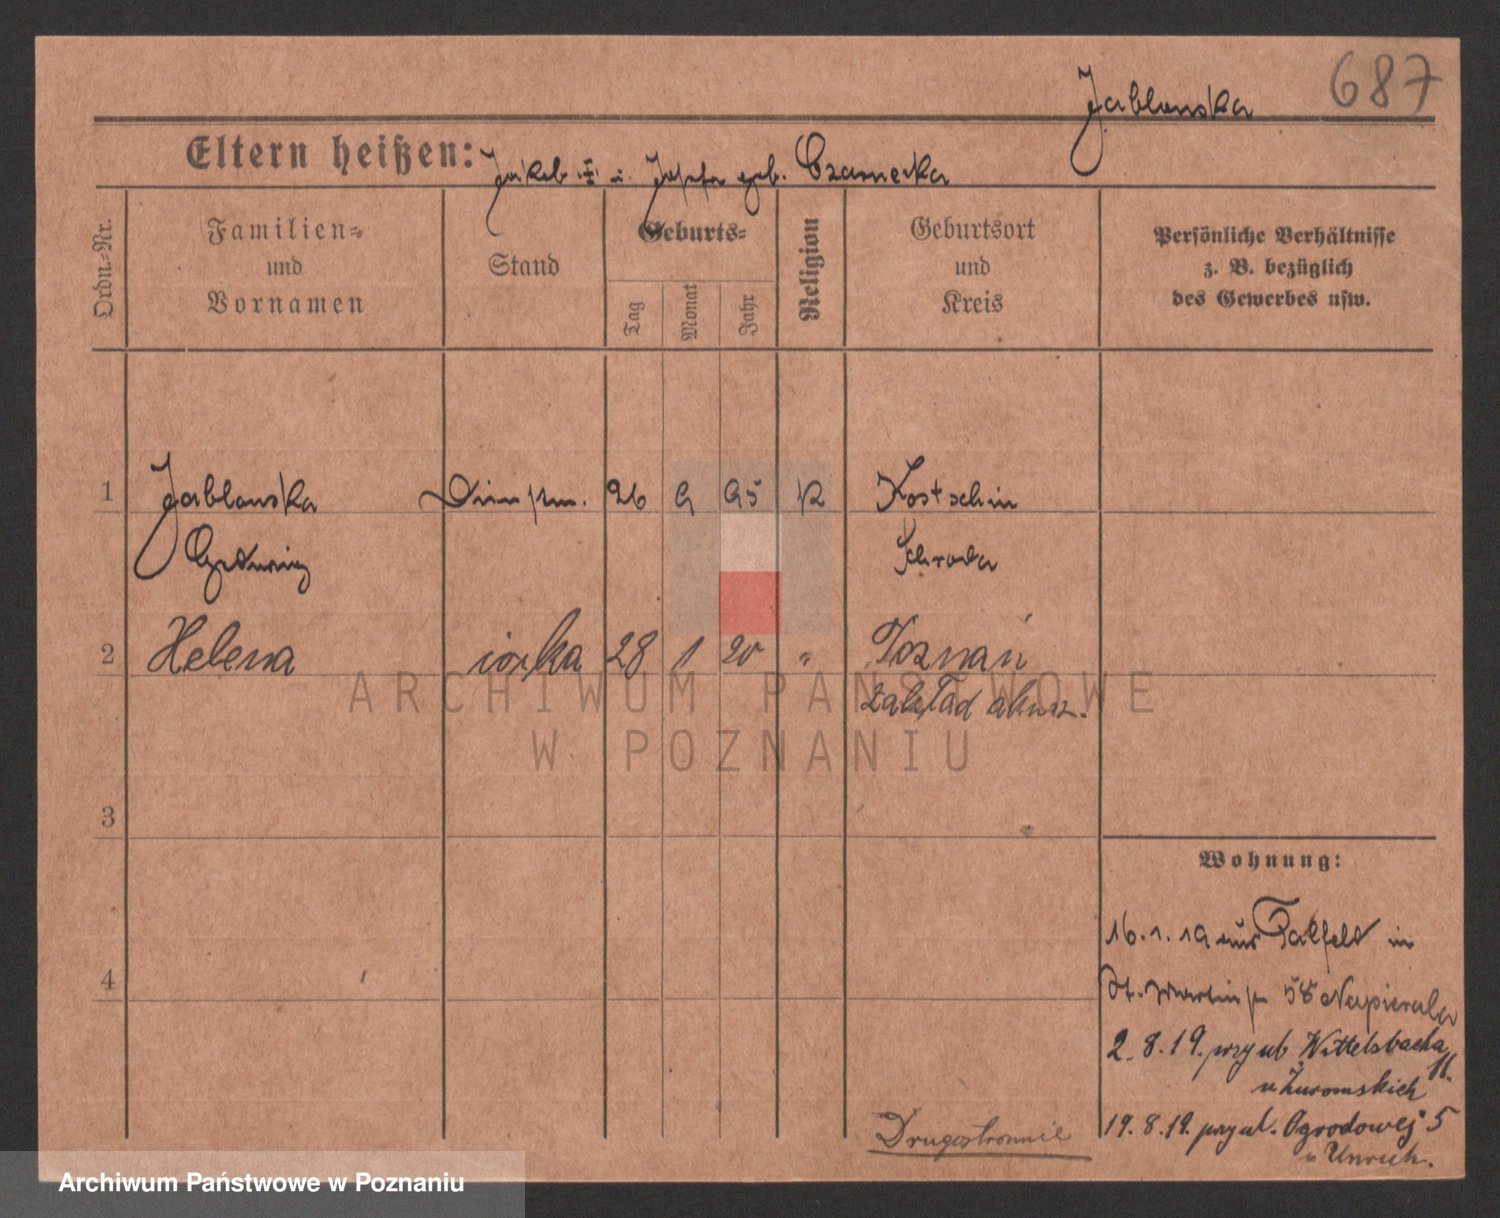 687
Jablonska
Eltern heißen: Jakob u. Josefa geb. Czarnecka
Ordn.-Nr.
Familien- und Vornamen
Stand
Geburts-
Tag
Monat
Jahr
Religion
Geburtsort und Kreis
Persönliche Verhältnisse z. B. bezüglich des Gewerbes usw.
1 Jablonska 26 9 95 K Kostschin
Hedwig Schroda
2 Helena córka 28 1 20 " Poznań
zakład akusz.
3
4
Wohnung:
16.1.19 aus in
St. Martinstr 58 Napierala
2.8.19. przy ul. Wittelsbacha 11.
u Żuromskich
19.8.19. przy ul. Ogrodowej 5
u Unruh.
Drugostronnie
ARCHIWUM PAŃSTWOWE
W POZNANIU
Archiwum Państwowe w Poznaniu